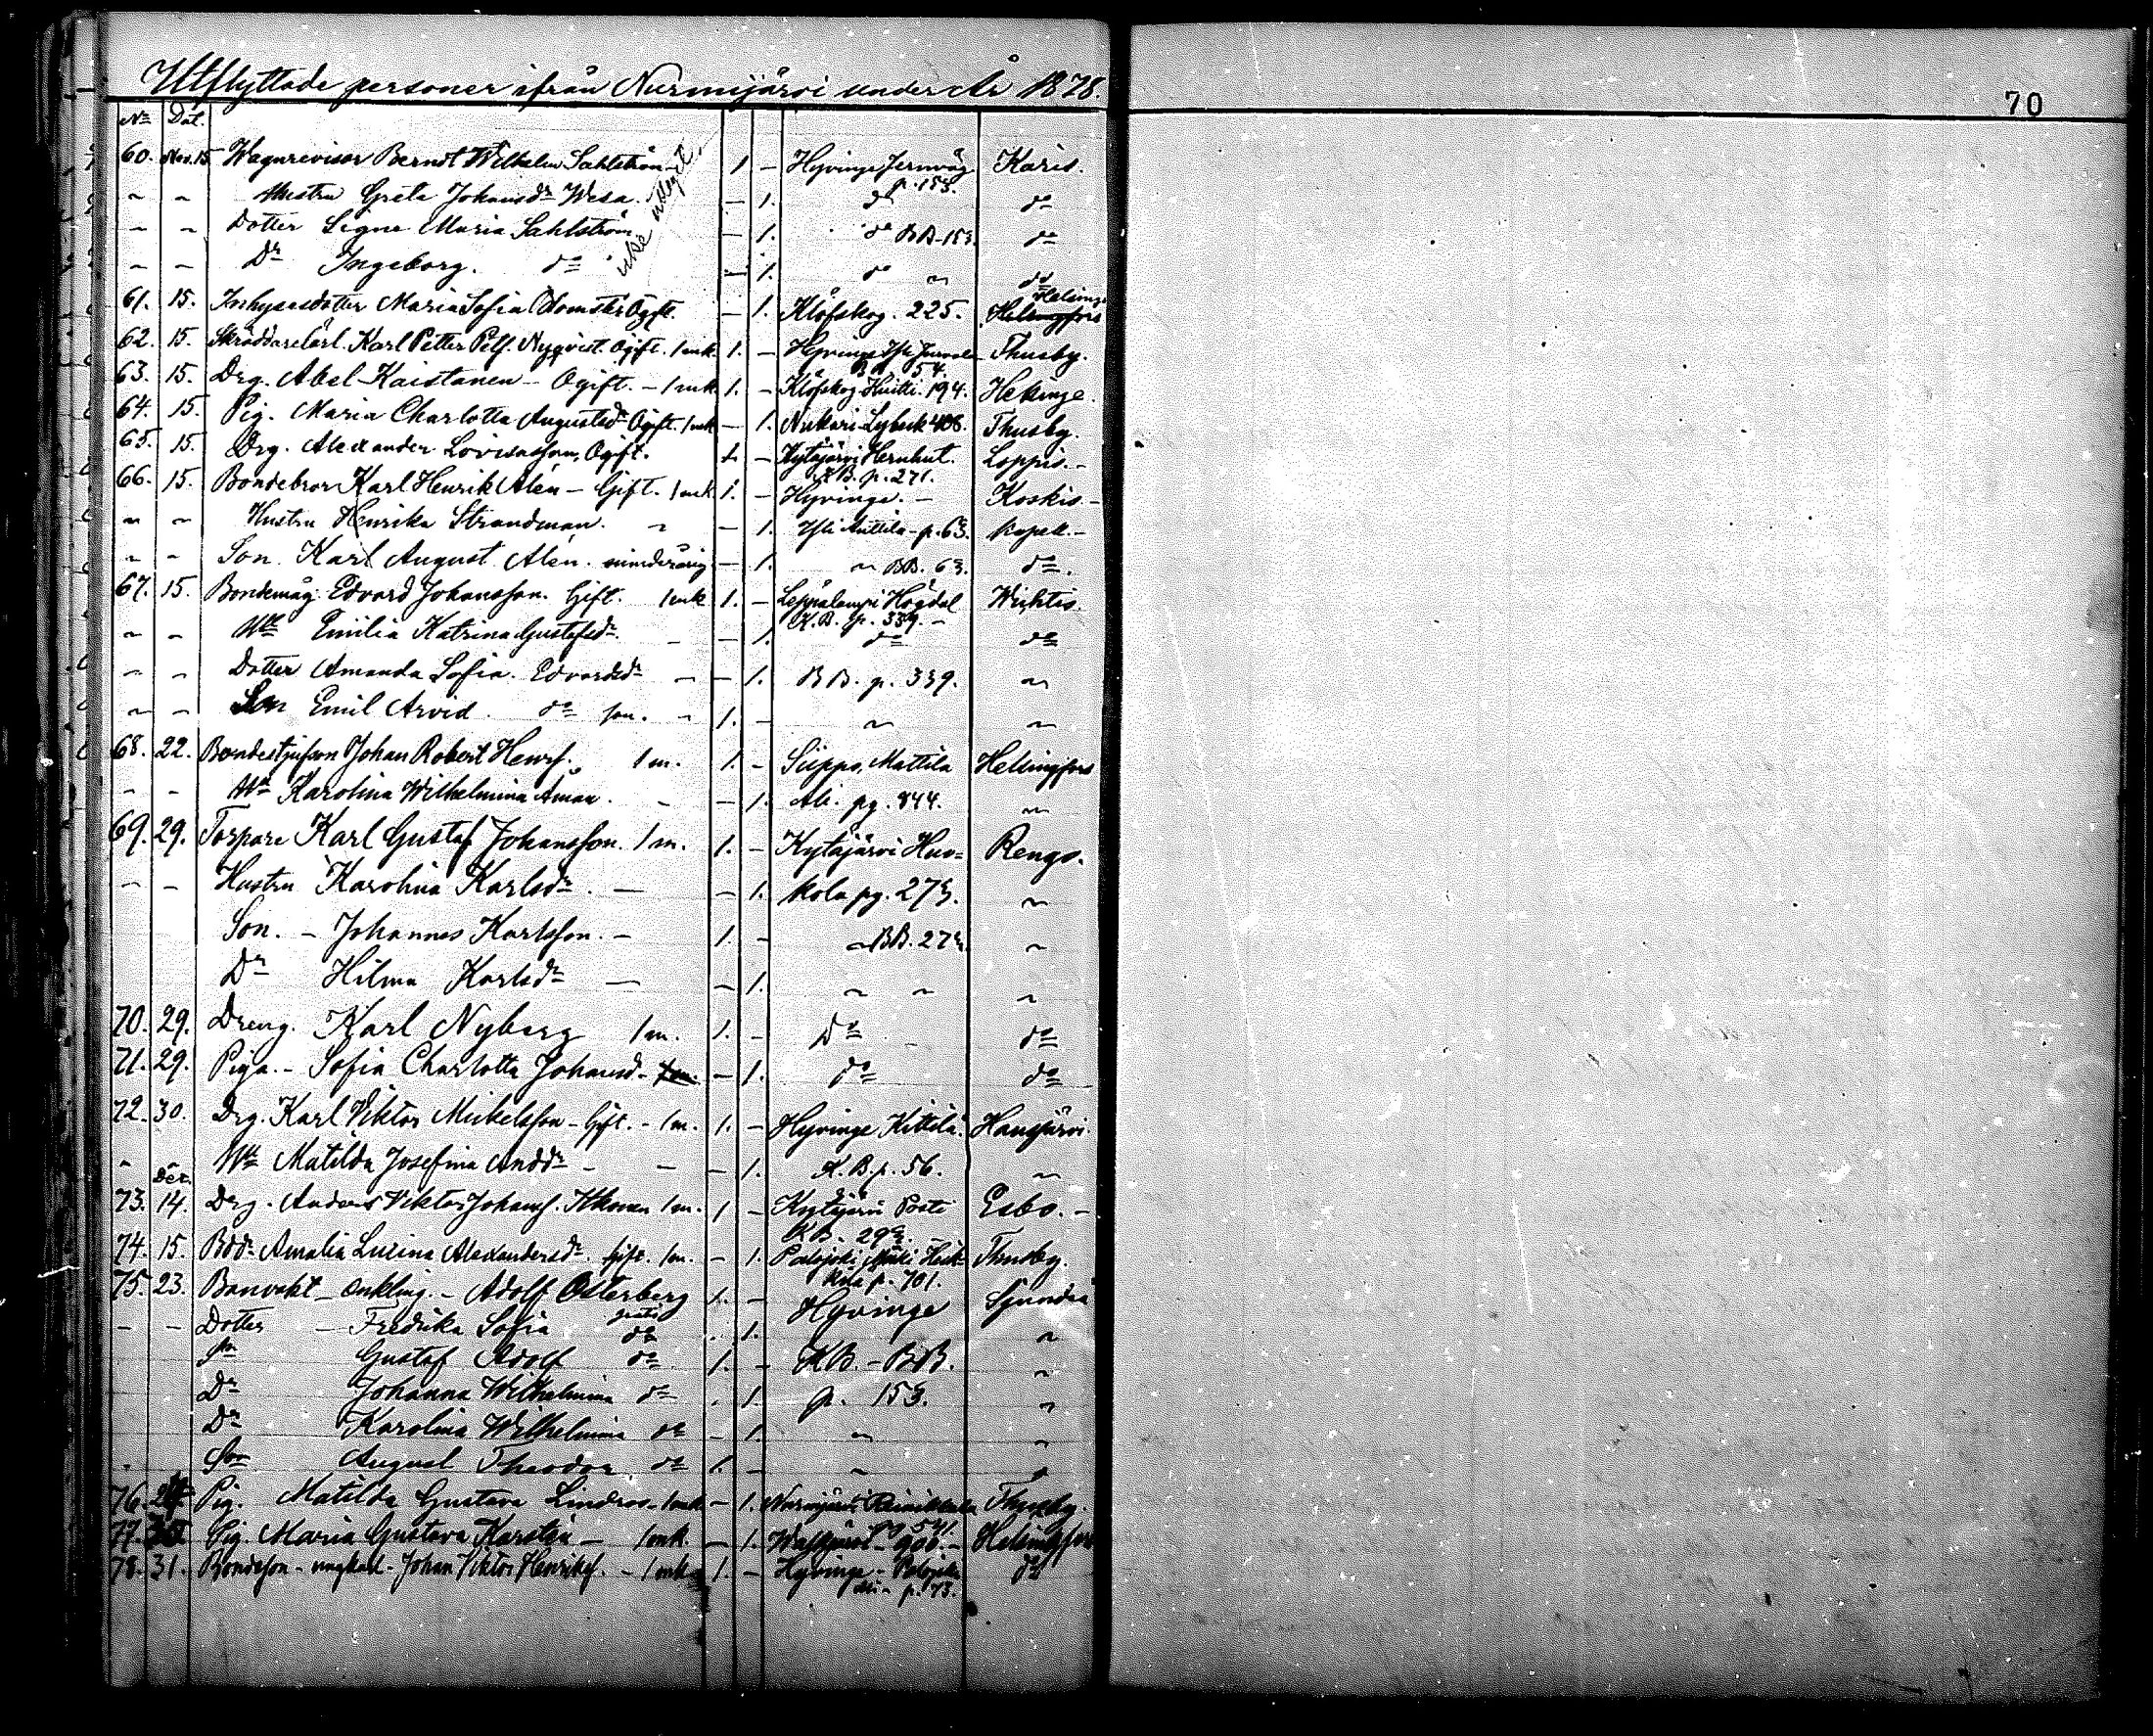 Utflyttade personer ifrån Nurmijärvi under År 1878.
70
No Dat.
60. Nov. 15. Wagnrevisor Berndt Wilhelm Sahlström 1 - Hyvinge Jernväg p. 153. Karis.
~ ~ Hustru Greta Johansdr Wesa. - 1. do do
~ ~ Dotter Signe Maria Sahlström - 1. do BB. 153. do
~ ~ Dr Ingeborg. do - 1. do ~ do
icke uttagit
61. 15. Inhysesdotter Maria Sofia Ogift. - 1. Klöfskog. 225. Helsinge Helsingfors
62. 15. Skräddarelärl. Karl Petter Nyqvist. Ogift. 1 mk 1. - Hyvinge 54. Thusby.
63. 15. Drg. Abel Kaistanen - Ogift. - 1 mk 1. - Klöfskog Huitti. 194. Helsinge.
64. 15. Pig. Maria Charlotta Augustsdr Ogift. 1 mk - 1. Nukari Lybeck 408. Thusby.
65. 15. Drg. Alexander Lovisasson, Ogift. 1. - Kytäjärvi Hernhut. K.B. p. 271. Loppis. -
66. 15. Bondebror Karl Henrik Alén - Gift. 1 mk 1. - Hyvinge. - Koskis. -
~ ~ Hustru Henrika Strandman. ~ - 1. Yli Anttila - p. 63. Kapell. -
~ ~ Son Karl August Alén. minderårig - 1. ~ BB. 63. do.
67. 15. Bondemåg Edvard Johansson. Gift. 1 mk 1. - Leppälampi Högdal K.B. p. 339. - Wichtis.
~ ~ Hu Emilia Katrina Gustafsdr. - - 1. do do
~ ~ Dotter Amanda Sofia. Edvardsdr - - 1. BB. p. 339. ~
~ ~ Son Emil Arvid. do son. ~ 1. - ~ ~
68. 22. Bondestjufson Johan Robert Henrs. 1 m. 1. - Siippo, Mattila Helsingfors
~ ~ Hu Karolina Wilhelmina Åman. - - 1. Ali. pg. 844. ~
69. 29. Torpare Karl Gustaf Johansson. 1 m. 1. - Kytäjärvi Huv= Rengo.
~ ~ Hustru Karolina Karlsdr. - - 1. kola pg. 273. ~
Son. - Johannes Karlsson. - 1. - ~ BB. 273. ~
Dr Hilma Karlsdr - - 1. ~ ~ ~
70. 29. Dreng. Karl Nyberg 1 m. 1. - Do do
71. 29. Piga. - Sofia Charlotta Johansd. - 1 m. - 1. do do
72. 30. Drg. Karl Viktor Mickelsson - Gift. - 1 m. 1. - Hyvinge Kittilä. Hausjärvi.
~ Hu Matilda Josefina Andsdr - - - 1. K.B. p. 56. ~
Dec.
73. 14. Drg. Anders Viktor Johans. Itkonen 1 m. 1 - Kytäjärvi KB. 293. Esbo. -
74. 15. Bddr. Amalia Lusina Alexandersdr. Gift. 1 m. - 1. Palojoki p. 701. Thusby.
75. 23. Banvakt - Enkling. - Adolf Österberg 1. - Hyvinge Sjundeå
~ ~ Dotter - Fredrika Sofia gratis do . 1. ~
Son Gustaf Adolf do 1. - KB. - BB. ~
Dr Johanna Wilhelmina do . 1. p. 153. ~
Dr Karolina Wilhelmina do - 1. ~ ~
Son August Theodor do 1. - ~ ~
76. Pig. Matilda Gustava Lindros - 1 mk - 1. Nurmijärvi 541. Thusby.
77. Pig. Maria Gustava Karstén - 1 mk. - 1. 900. - Helsingfors
78. 31. Bondeson - ungkarl - Johan Viktor Henriks. - 1 mk 1. - Hyvinge - p. 73. do